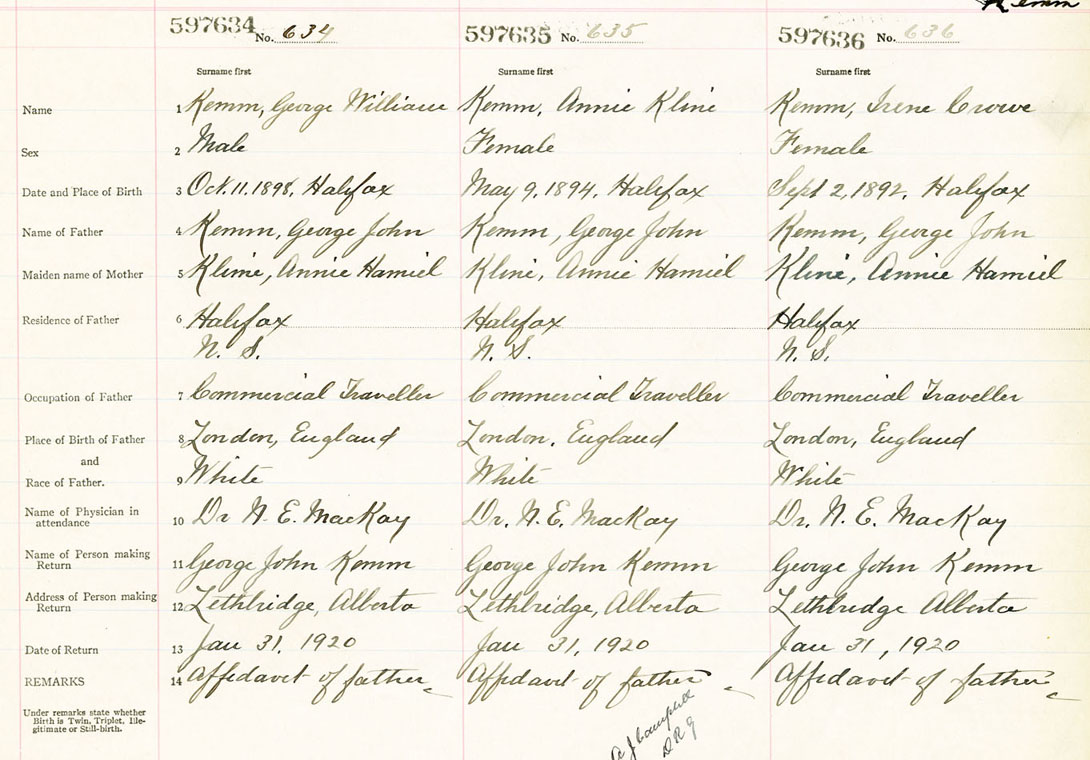 Kemm
597634 No. 634 597635 No. 635 597636 No. 636
Surname first Surname first Surname first
Name 1 Kemm, George William Kemm, Annie Kline Kemm, Irene Crowe
Sex 2 Male Female Female
Date and Place of Birth 3 Oct. 11, 1898, Halifax May 9, 1894, Halifax Sept 2, 1892, Halifax
Name of Father 4 Kemm, George John Kemm, George John Kemm, George John
Maiden name of Mother 5 Kline, Annie Hamiel Kline, Annie Hamiel Kline, Annie Hamiel
Residence of Father 6 Halifax Halifax Halifax
N. S. N. S. N. S.
Occupation of Father 7 Commercial Traveller Commercial Traveller Commercial Traveller
Place of Birth of Father 8 London, England London, England London, England
and
Race of Father. 9 White White White
Name of Physician in
attendance 10 Dr N. E. MacKay Dr. N. E. MacKay Dr. N. E. MacKay
Name of Person making
Return 11 George John Kemm George John Kemm George John Kemm
Address of Person making
Return 12 Lethbridge, Alberta Lethbridge, Alberta Lethbridge Alberta
Date of Return 13 Jan 31, 1920 Jan 31, 1920 Jan 31, 1920
REMARKS 14 Affidavit of father Affidavit of father Affidavit of father
Under remarks state whether
Birth is Twin, Triplet, Ille-
gitimate or Still-birth.
A J Campbell
D R G